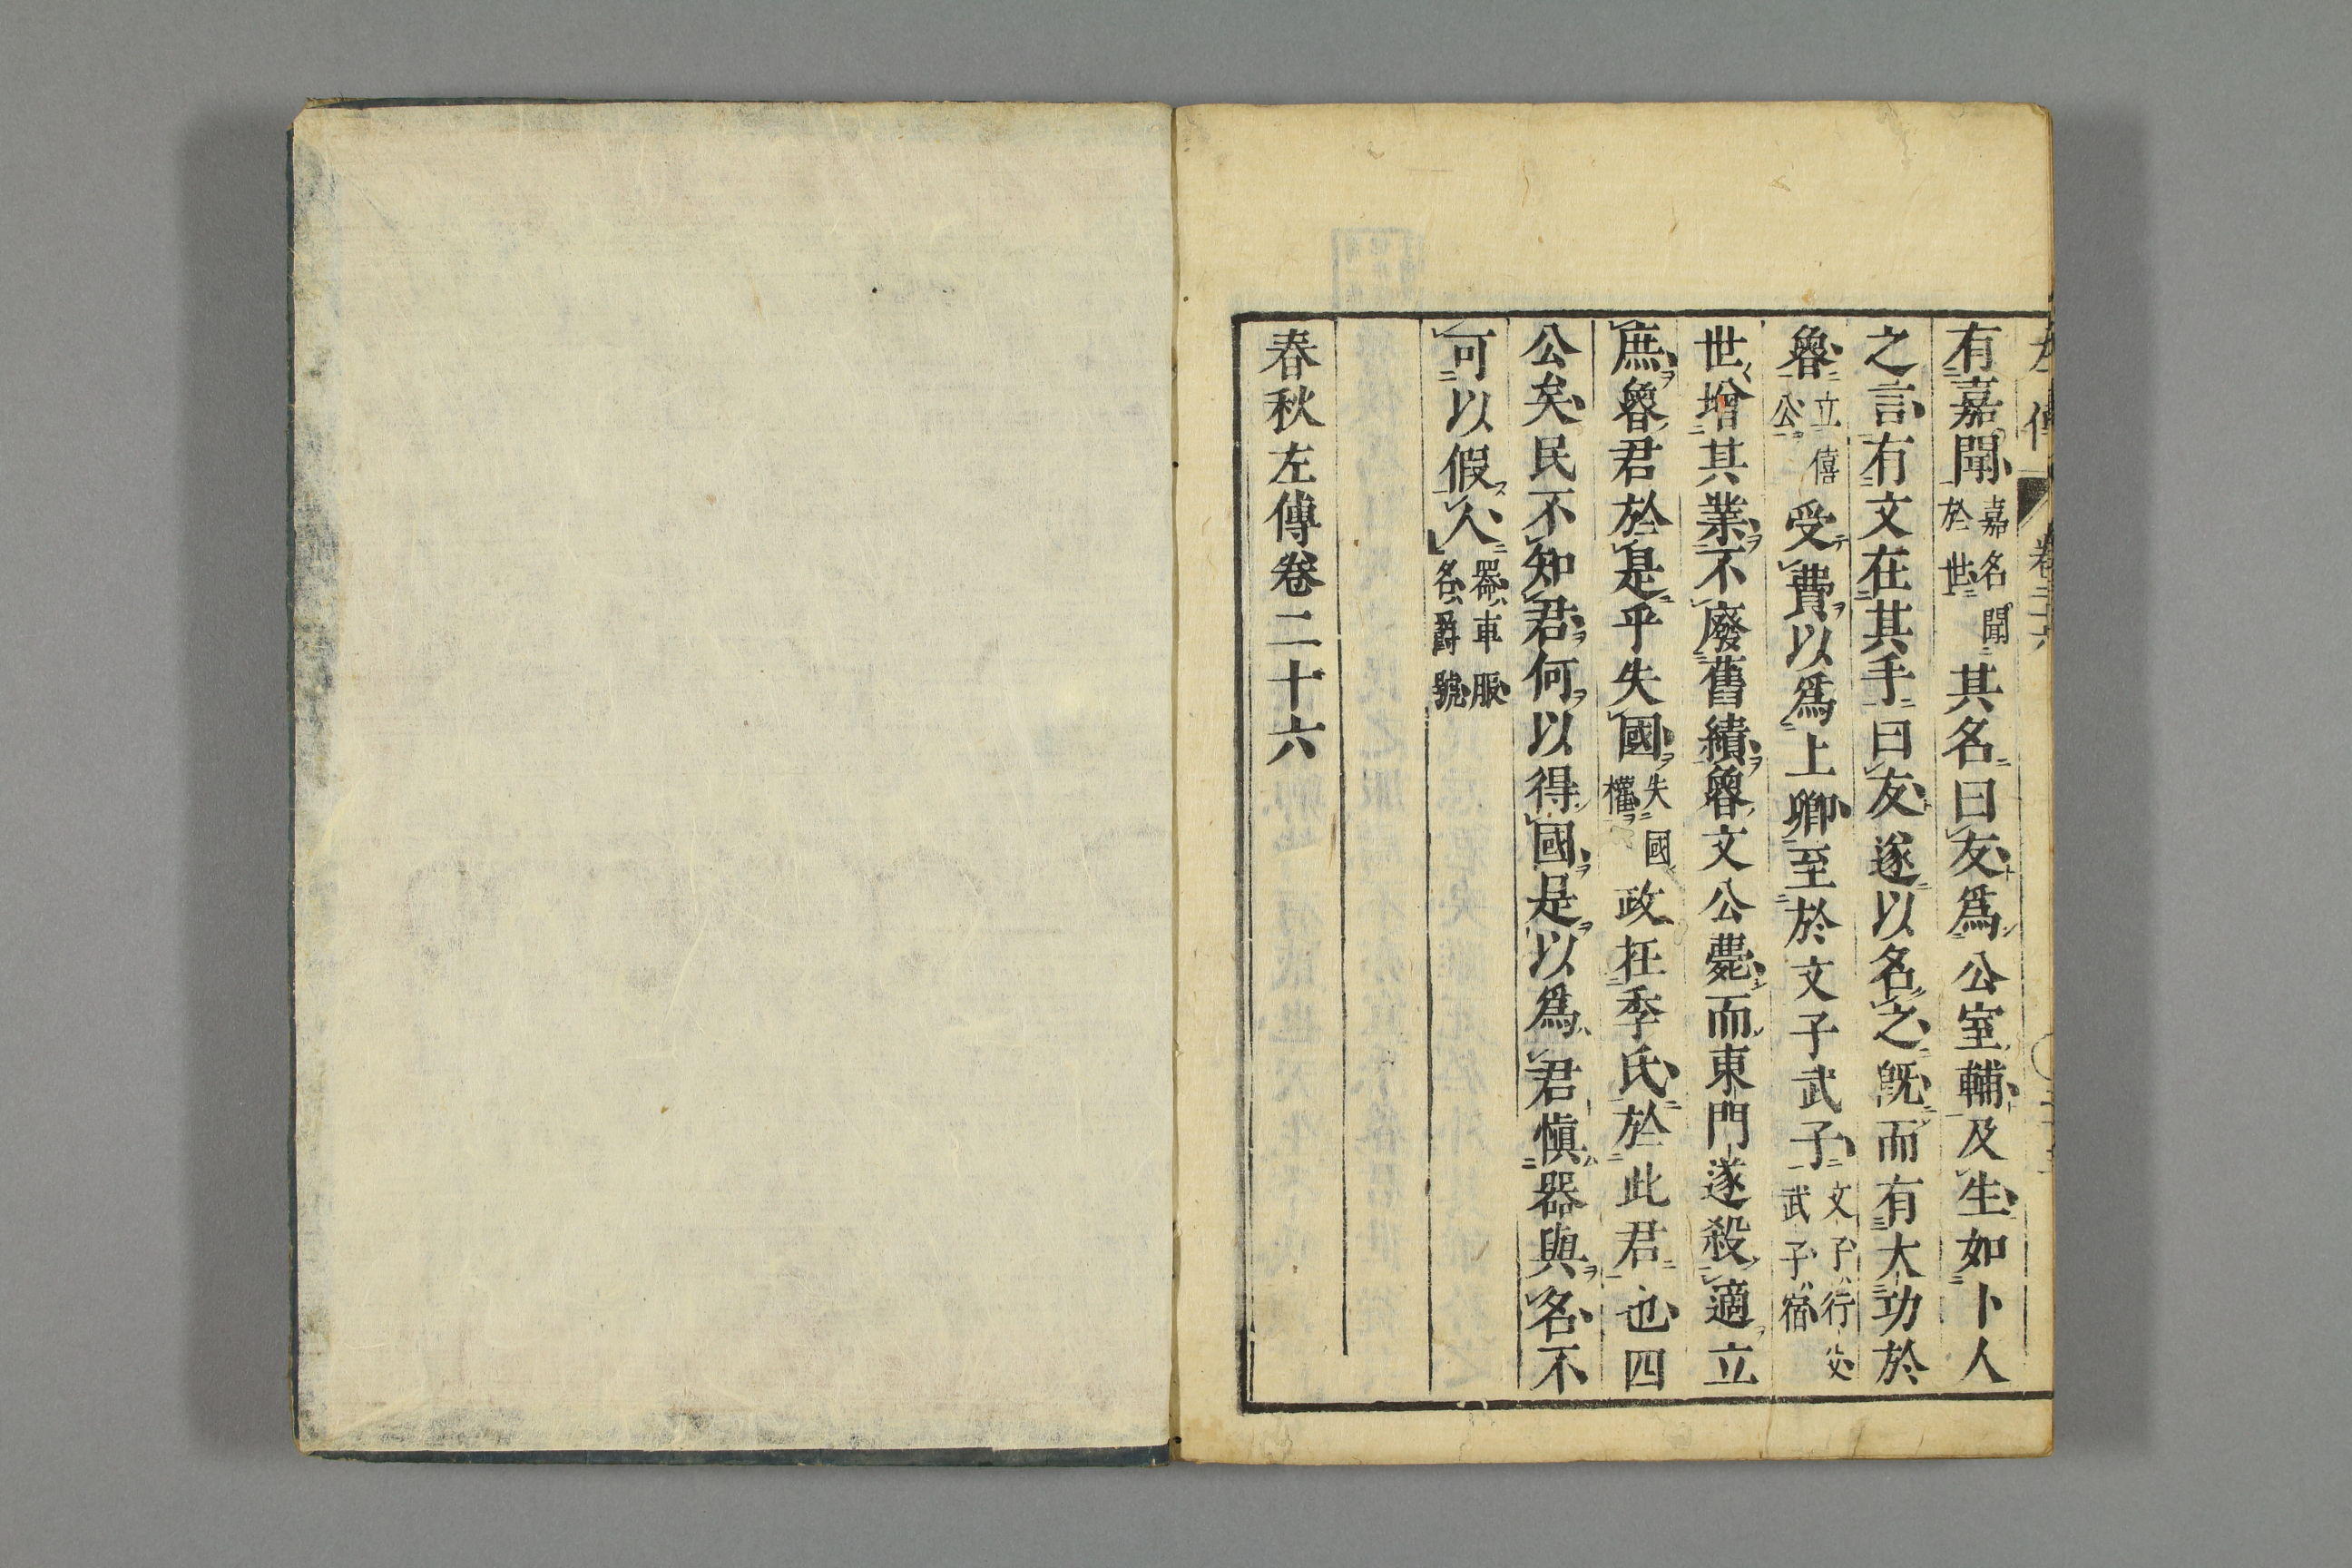 有嘉聞嘉名聞於世其名曰友爲公室輔及生如卜人
之言有文在其手曰友遂以名之既而有大功於
魯立僖公受費以爲上卿至於文子武子文子行父武子宿
世增其業不廢舊績魯文公薨而東門遂殺適立
庶魯君於是乎失國失國權政在季氏於此君也四
公矣民不知君何以得國是以爲君愼器與名不
可以假人器車服名爵號
春秋左傳卷二十六